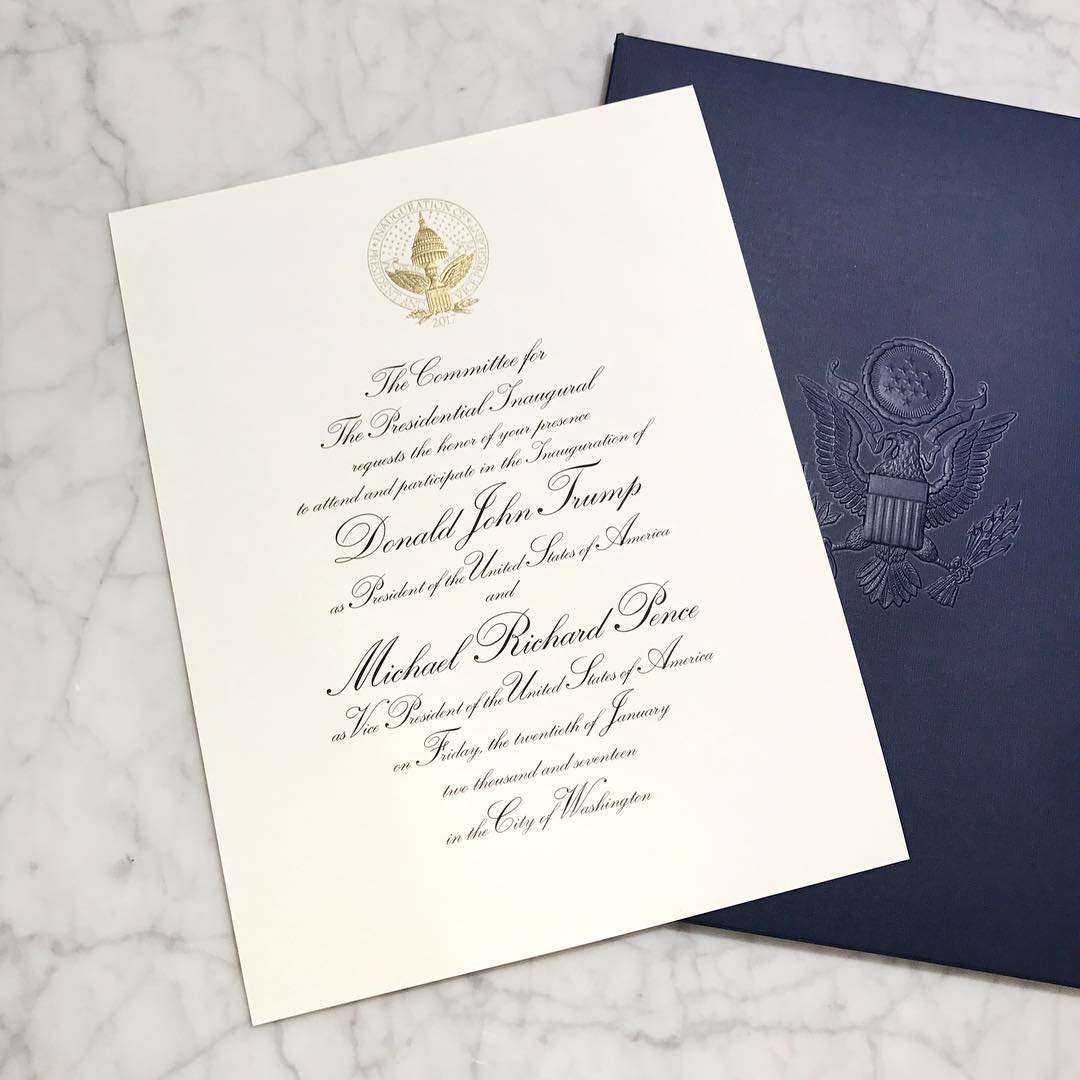 INAUGURATION OF
PRESIDENT AND VICE PRESIDENT
2017
The Committee for
The Presidential Inaugural
requests the honor of your presence
to attend and participate in the Inauguration of
Donald John Trump
as President of the United States of America
and
Michael Richard Pence
as Vice President of the United States of America
on Friday, the twentieth of January
two thousand and seventeen
in the City of Washington